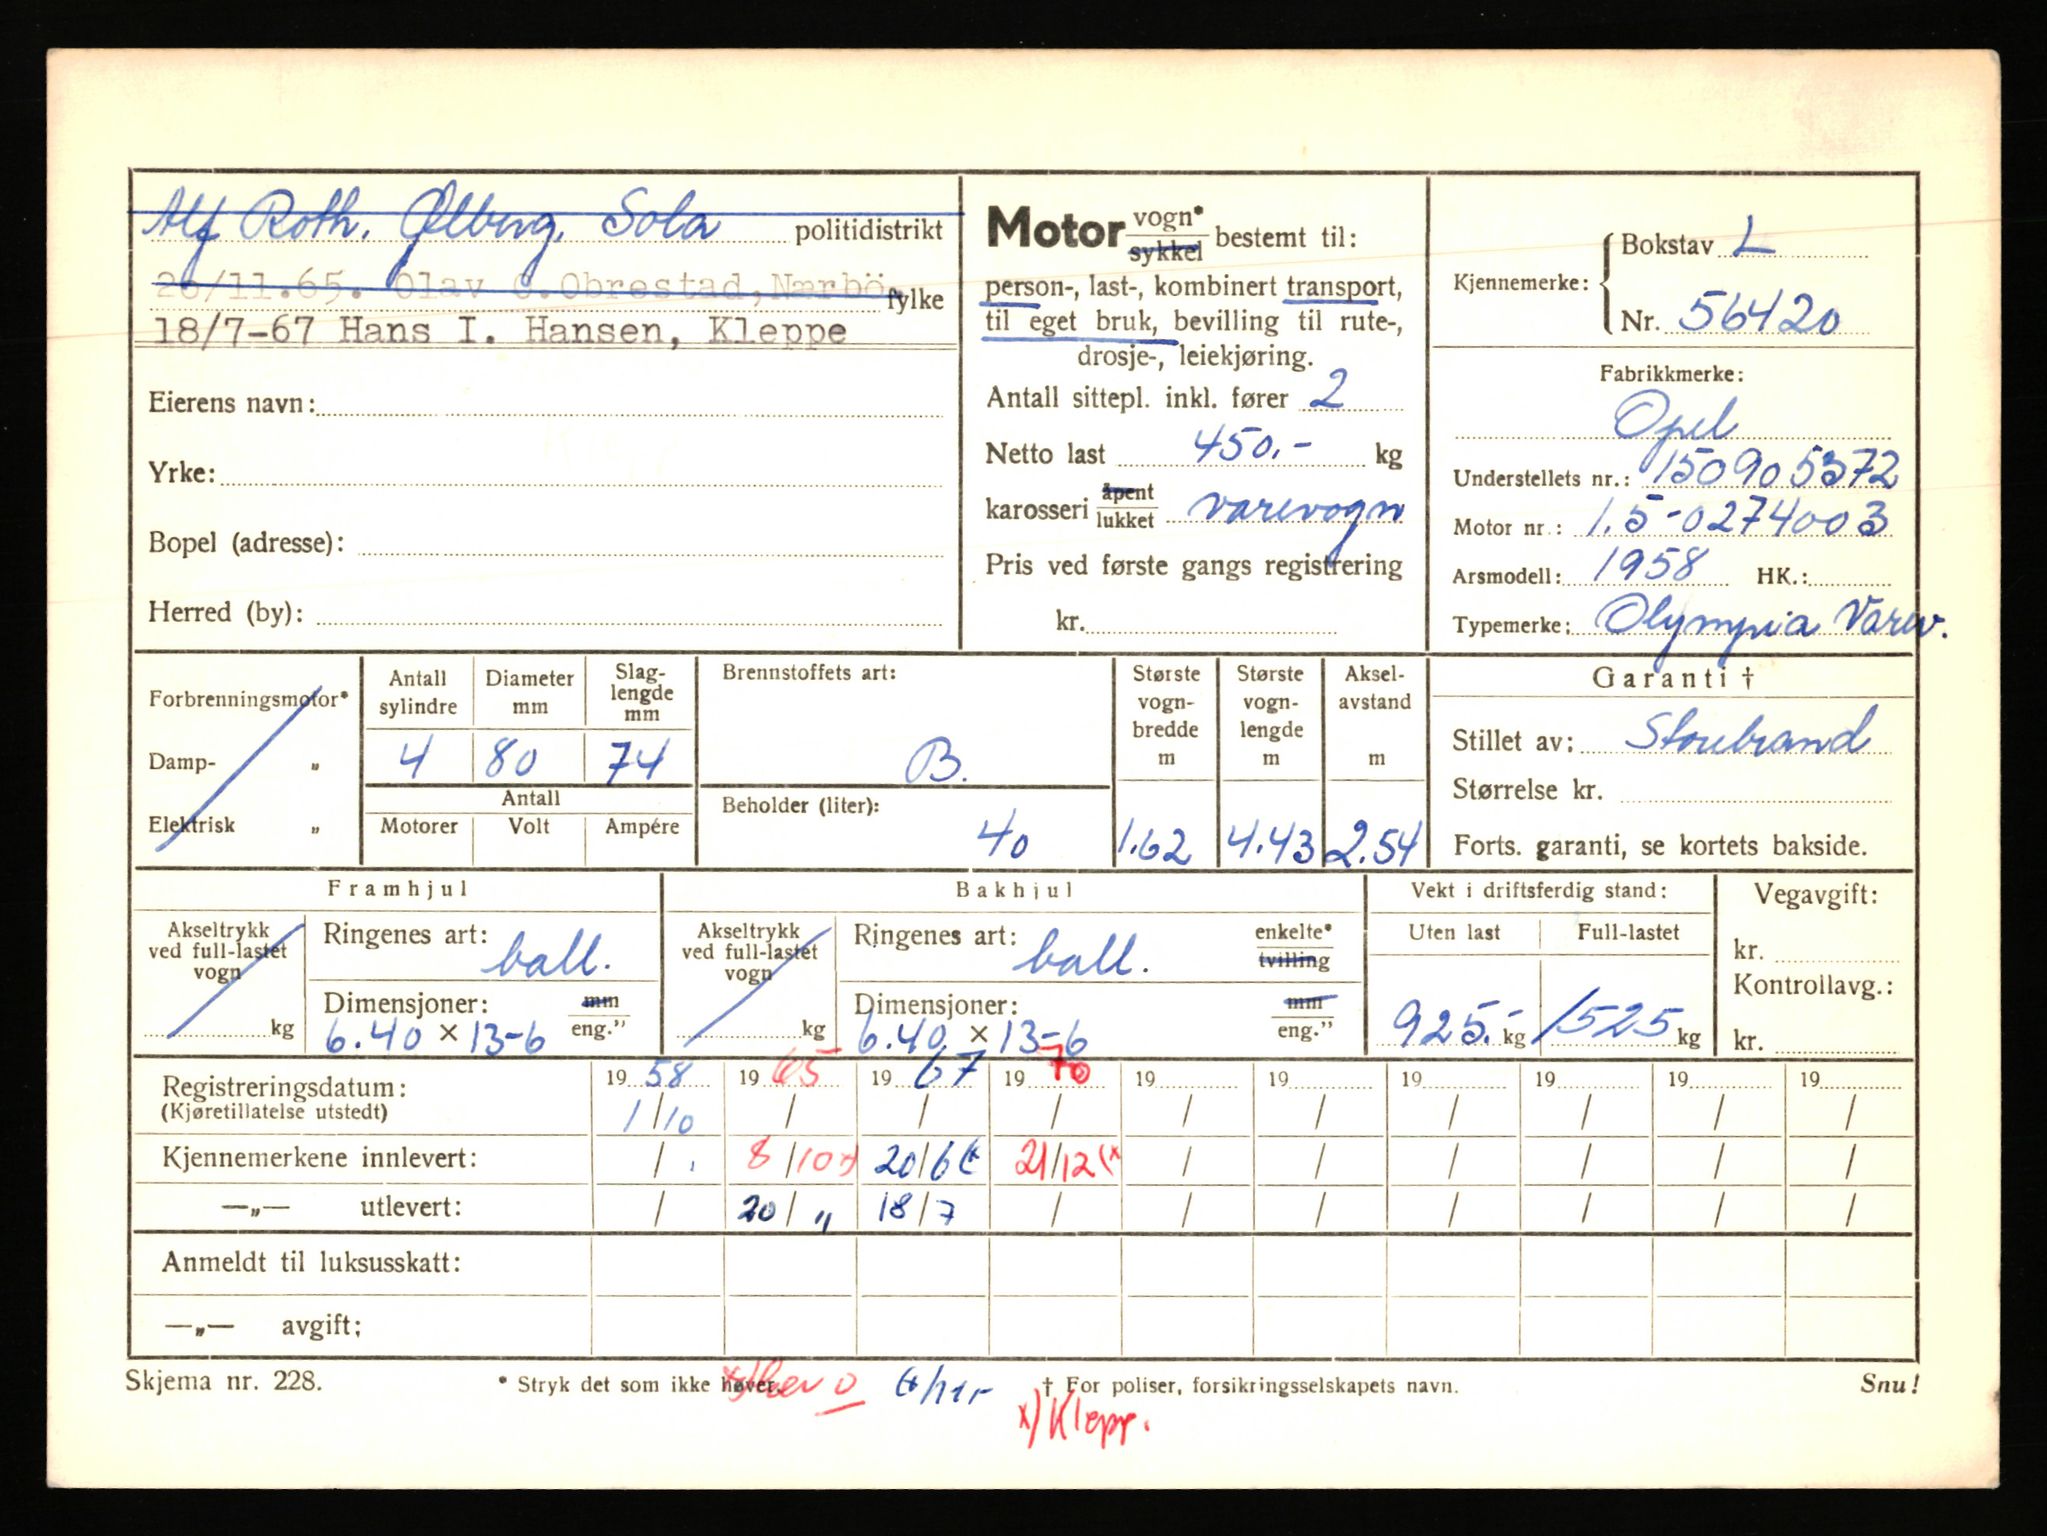 Alf Roth. Ølberg. Sola politidistrikt
20/11.65. Olav O.Obrestad,Nærbö fylke
18/7-67 Hans I. Hansen, Kleppe
Eierens navn:
Yrke:
Bopel (adresse):
Herred (by):
Motor vogn* sykkel bestemt til:
person-, last-, kombinert transport,
til eget bruk, bevilling til rute-,
drosje-, leiekjøring.
Antall sittepl. inkl. fører 2
Netto last 450.- kg
karosseri åpent lukket varevogn
Pris ved første gangs registrering
kr.
Kjennemerke: Bokstav L
Nr. 56420
Fabrikkmerke:
Opel
Understellets nr.: 150905372
Motor nr.: 1.5-0274003
Arsmodell: 1958 HK.:
Typemerke: Olympia Varev.
Forbrenningsmotor*
Damp- „
Elektrisk „
Antall sylindre
4
Diameter mm
80
Slag-lengde mm
74
Antall
Motorer Volt Ampére
Brennstoffets art:
B.
Beholder (liter):
40
Største vogn-bredde m
1.62
Største vogn-lengde m
4.43
Aksel-avstand m
2.54
Garanti †
Stillet av: Storebrand
Størrelse kr.
Forts. garanti, se kortets bakside.
Framhjul
Akseltrykk ved full-lastet vogn
kg
Ringenes art: ball.
Dimensjoner: mm
6.40 × 13-6 eng.”
Bakhjul
Akseltrykk ved full-lastet vogn
kg
Ringenes art: ball. enkelte* tvilling
Dimensjoner: mm
6.40 × 13-6 eng.”
Vekt i driftsferdig stand:
Uten last Full-lastet
925.- kg 1525 kg
Vegavgift:
kr.
Kontrollavg.:
kr.
Registreringsdatum: 19 58 19 65 19 67 19 70 19 19 19 19 19 19
(Kjøretillatelse utstedt) 1/10 / / / / / / / / /
Kjennemerkene innlevert: / 8/10 x) 20/6 (* 21/12 (x / / / / / /
—„— utlevert: / 20/„ 18/7 / / / / / / /
Anmeldt til luksusskatt:
—„— avgift:
Skjema nr. 228. * Stryk det som ikke høver. † For poliser, forsikringsselskapets navn. Snu!
x) Klepp.